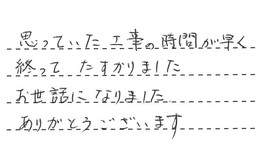 思っていた工事の時間が早く
終って たすかりました
お世話になりました
ありがとうございます